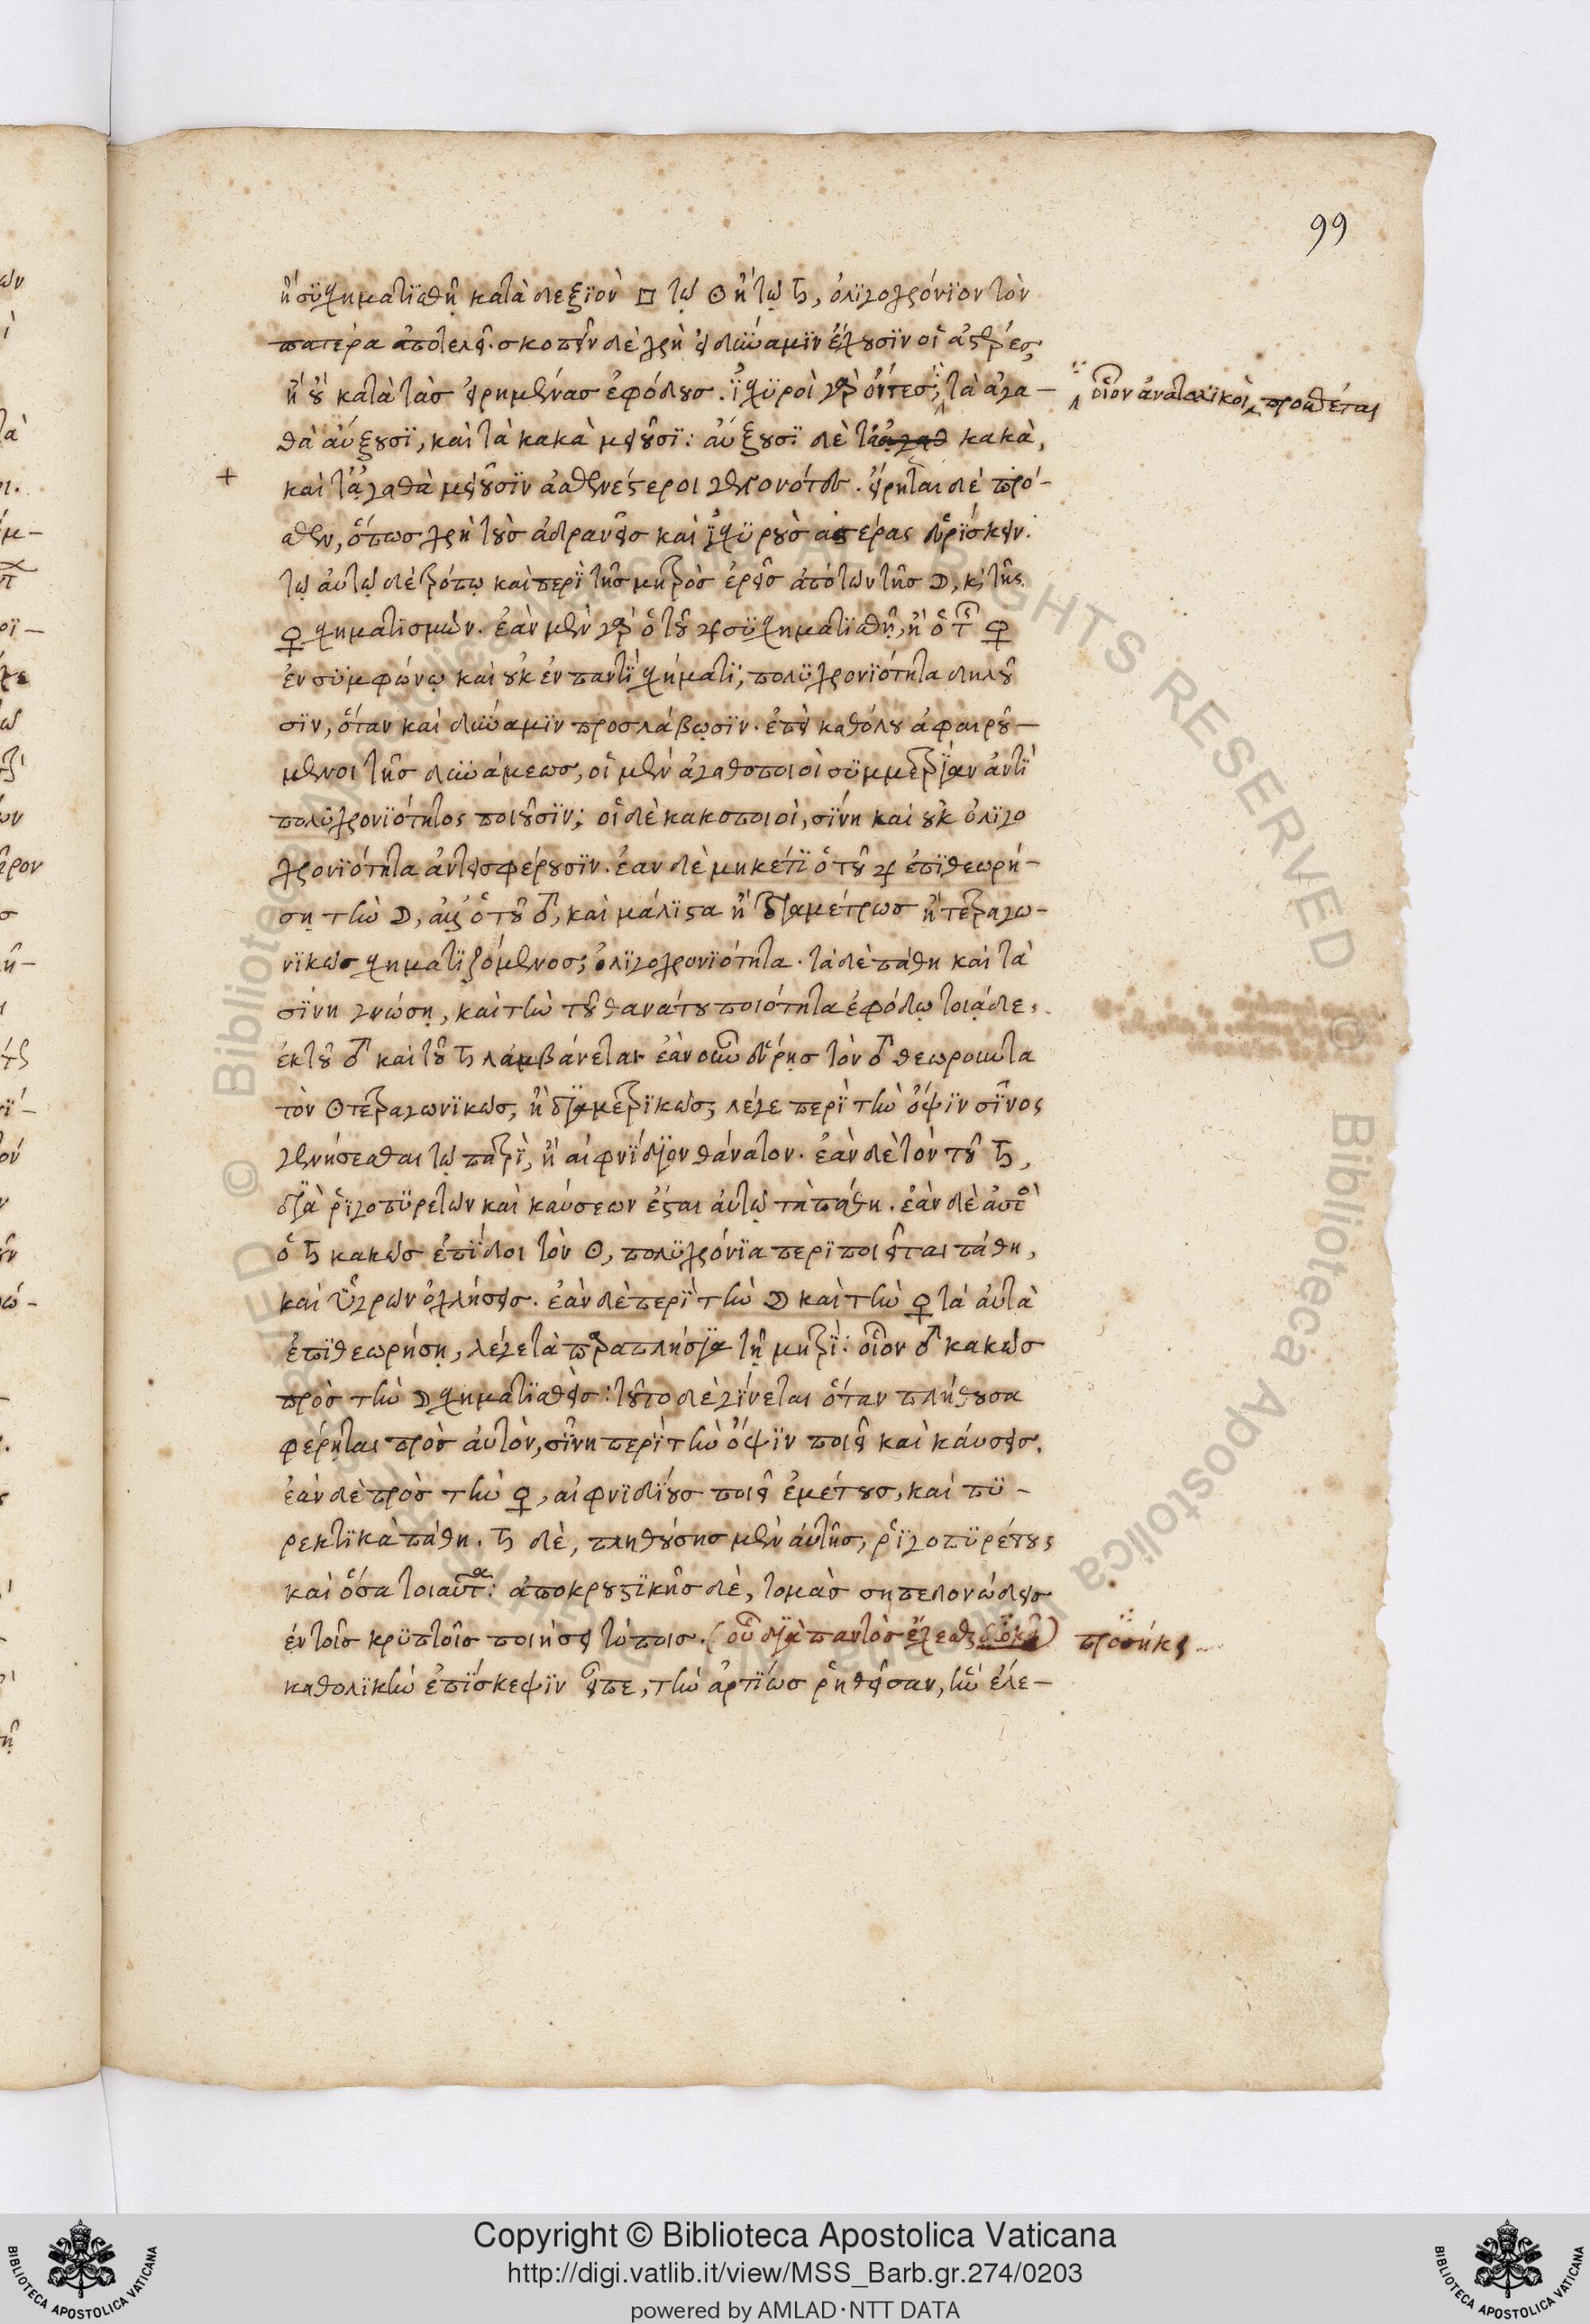 99
ἢ συσχηματισθῇ κατὰ δεξιὸν □ τῷ ☉ ἢ τῷ ♄, ὀλιγοχρόνιον τὸν
πατέρα ἀποτελεῖ. σκοπεῖν δὲ χρὴ εἰ δύναμιν ἔχουσιν οἱ ἀστέρες
ἢ οὐ κατὰ τὰς εἰρημένας ἐφόδους. ἰσχυροὶ γὰρ ὄντες, τὰ ἀγα–
οἷον ἀνατολικοὶ, προσθέται
θὰ αὔξουσι, καὶ τὰ κακὰ μειοῦσι: αὔξουσι δὲ τὰ ἀγαθ κακὰ,
+
καὶ τἀγαθὰ μειοῦσιν ἀσθενέστεροι γεγονότες. εἴρηται δὲ πρό–
σθεν, ὅπως χρὴ τοὺς ἀδρανεῖς καὶ ἰσχυροὺς ἀστέρας εὑρίσκειν.
τῷ αὐτῷ δὲ τρόπῳ καὶ περὶ τῆς μητρὸς ἐρεῖς ἀπὸ τῶν τῆς ☽, κ̀ τῆς
♀ σχηματισμῶν. ἐὰν μὲν γὰρ ὁ τοῦ ♃ συσχηματισθῇ, ἢ ὁ τῆς ♀
ἐν συμφώνῳ καὶ οὐκ ἐν παντὶ σχήματι, πολυχρονιότητα δηλοῦ
σιν, ὅταν καὶ δύναμιν προσλάβωσιν. ἐπεὶ καθόλου ἀφαιρού–
μενοι τῆς δυνάμεως, οἱ μὲν ἀγαθοποιοὶ συμμετρίαν ἀντὶ
πολυχρονιότητος ποιοῦσιν; οἱ δὲ κακοποιοὶ, σίνη καὶ οὐκ ὀλιγο
χρονιότητα ἀντεισφέρουσιν. ἐαν δὲ μηκέτι ὁ τοῦ ♃ ἐπιθεωρή–
σῃ τὴν ☽, ἀλλ' ὁ τοῦ ♂, καὶ μάλιστα ἢ διαμέτρως ἢ τετραγω–
νικῶς σχηματιζόμενος; ὀλιγοχρονιότητα. τὰ δὲ πάθη καὶ τὰ
σίνη γνώσῃ, καὶ τὴν τοῦ θανάτου ποιότητα ἐφόδῳ τοιᾷδε:
ἐκ τοῦ ♂ καὶ τοῦ ♄ λαμβάνεται ἐὰν οὖν εὕρῃς τὸν ♂ θεωροῦντα
τὸν ☉ τετραγωνικῶς, ἢ διαμετρικῶς, λέγε περὶ τὴν ὄψιν σίνος
γενήσεσθαι τῷ πατρὶ, ἢ αἰφνίδιον θάνατον. ἐὰν δὲ τὸν τοῦ ♄,
διὰ ῥιγοπυρέτων καὶ καύσεων ἔσται αὐτῷ τὰ πάθη. ἐὰν δὲ αὐτὸς
ὁ ♄ κακῶς ἐπίδοι τὸν ☉, πολυχρόνια περιποιεῖται πάθη,
καὶ ὑγρῶν ὀχλήσεις. ἐὰν δὲ περὶ τὴν ☽ καὶ τὴν ♀ τὰ αὐτὰ
ἐπιθεωρήσῃ, λέγε τὰ παραπλήσια τῇ μητρί: οἷον ♂ κακῶς
πρὸς τὴν ☽ σχηματισθεὶς: τοῦτο δὲ γίνεται ὅταν πλήθουσα
φέρηται πρὸς αὐτὸν, σίνη περὶ τὴν ὄψιν ποιεῖ καὶ καύσεις.
ἐὰν δὲ πρὸς τὴν ♀, αἰφνιδίους ποιεῖ ἐμέτους, καὶ πυ–
ρεκτικὰ πάθη. ♄ δὲ, πληθούσης μὲν αὐτῆς, ῥιγοπυρέτους
καὶ ὅσα τοιαῦτα: ἀποκρουστικῆς δὲ, τομὰς σηπεδονώδεις
ἐν τοῖς κρυπτοῖς ποιήσει τόποις. (οὖν διὰ παντὸς ἔχεσθαι
προσήκει
καθολικὴν ἐπίσκεψιν εἶπε, τὴν ἀρτίως ῥηθεῖσαν, ἣν ἐλε–
Copyright © Biblioteca Apostolica Vaticana
http://digi.vatlib.it/view/MSS_Barb.gr.274/0203
powered by AMLAD·NTT DATA
BIBLIOTECA APOSTOLICA VATICANA
BIBLIOTECA APOSTOLICA VATICANA